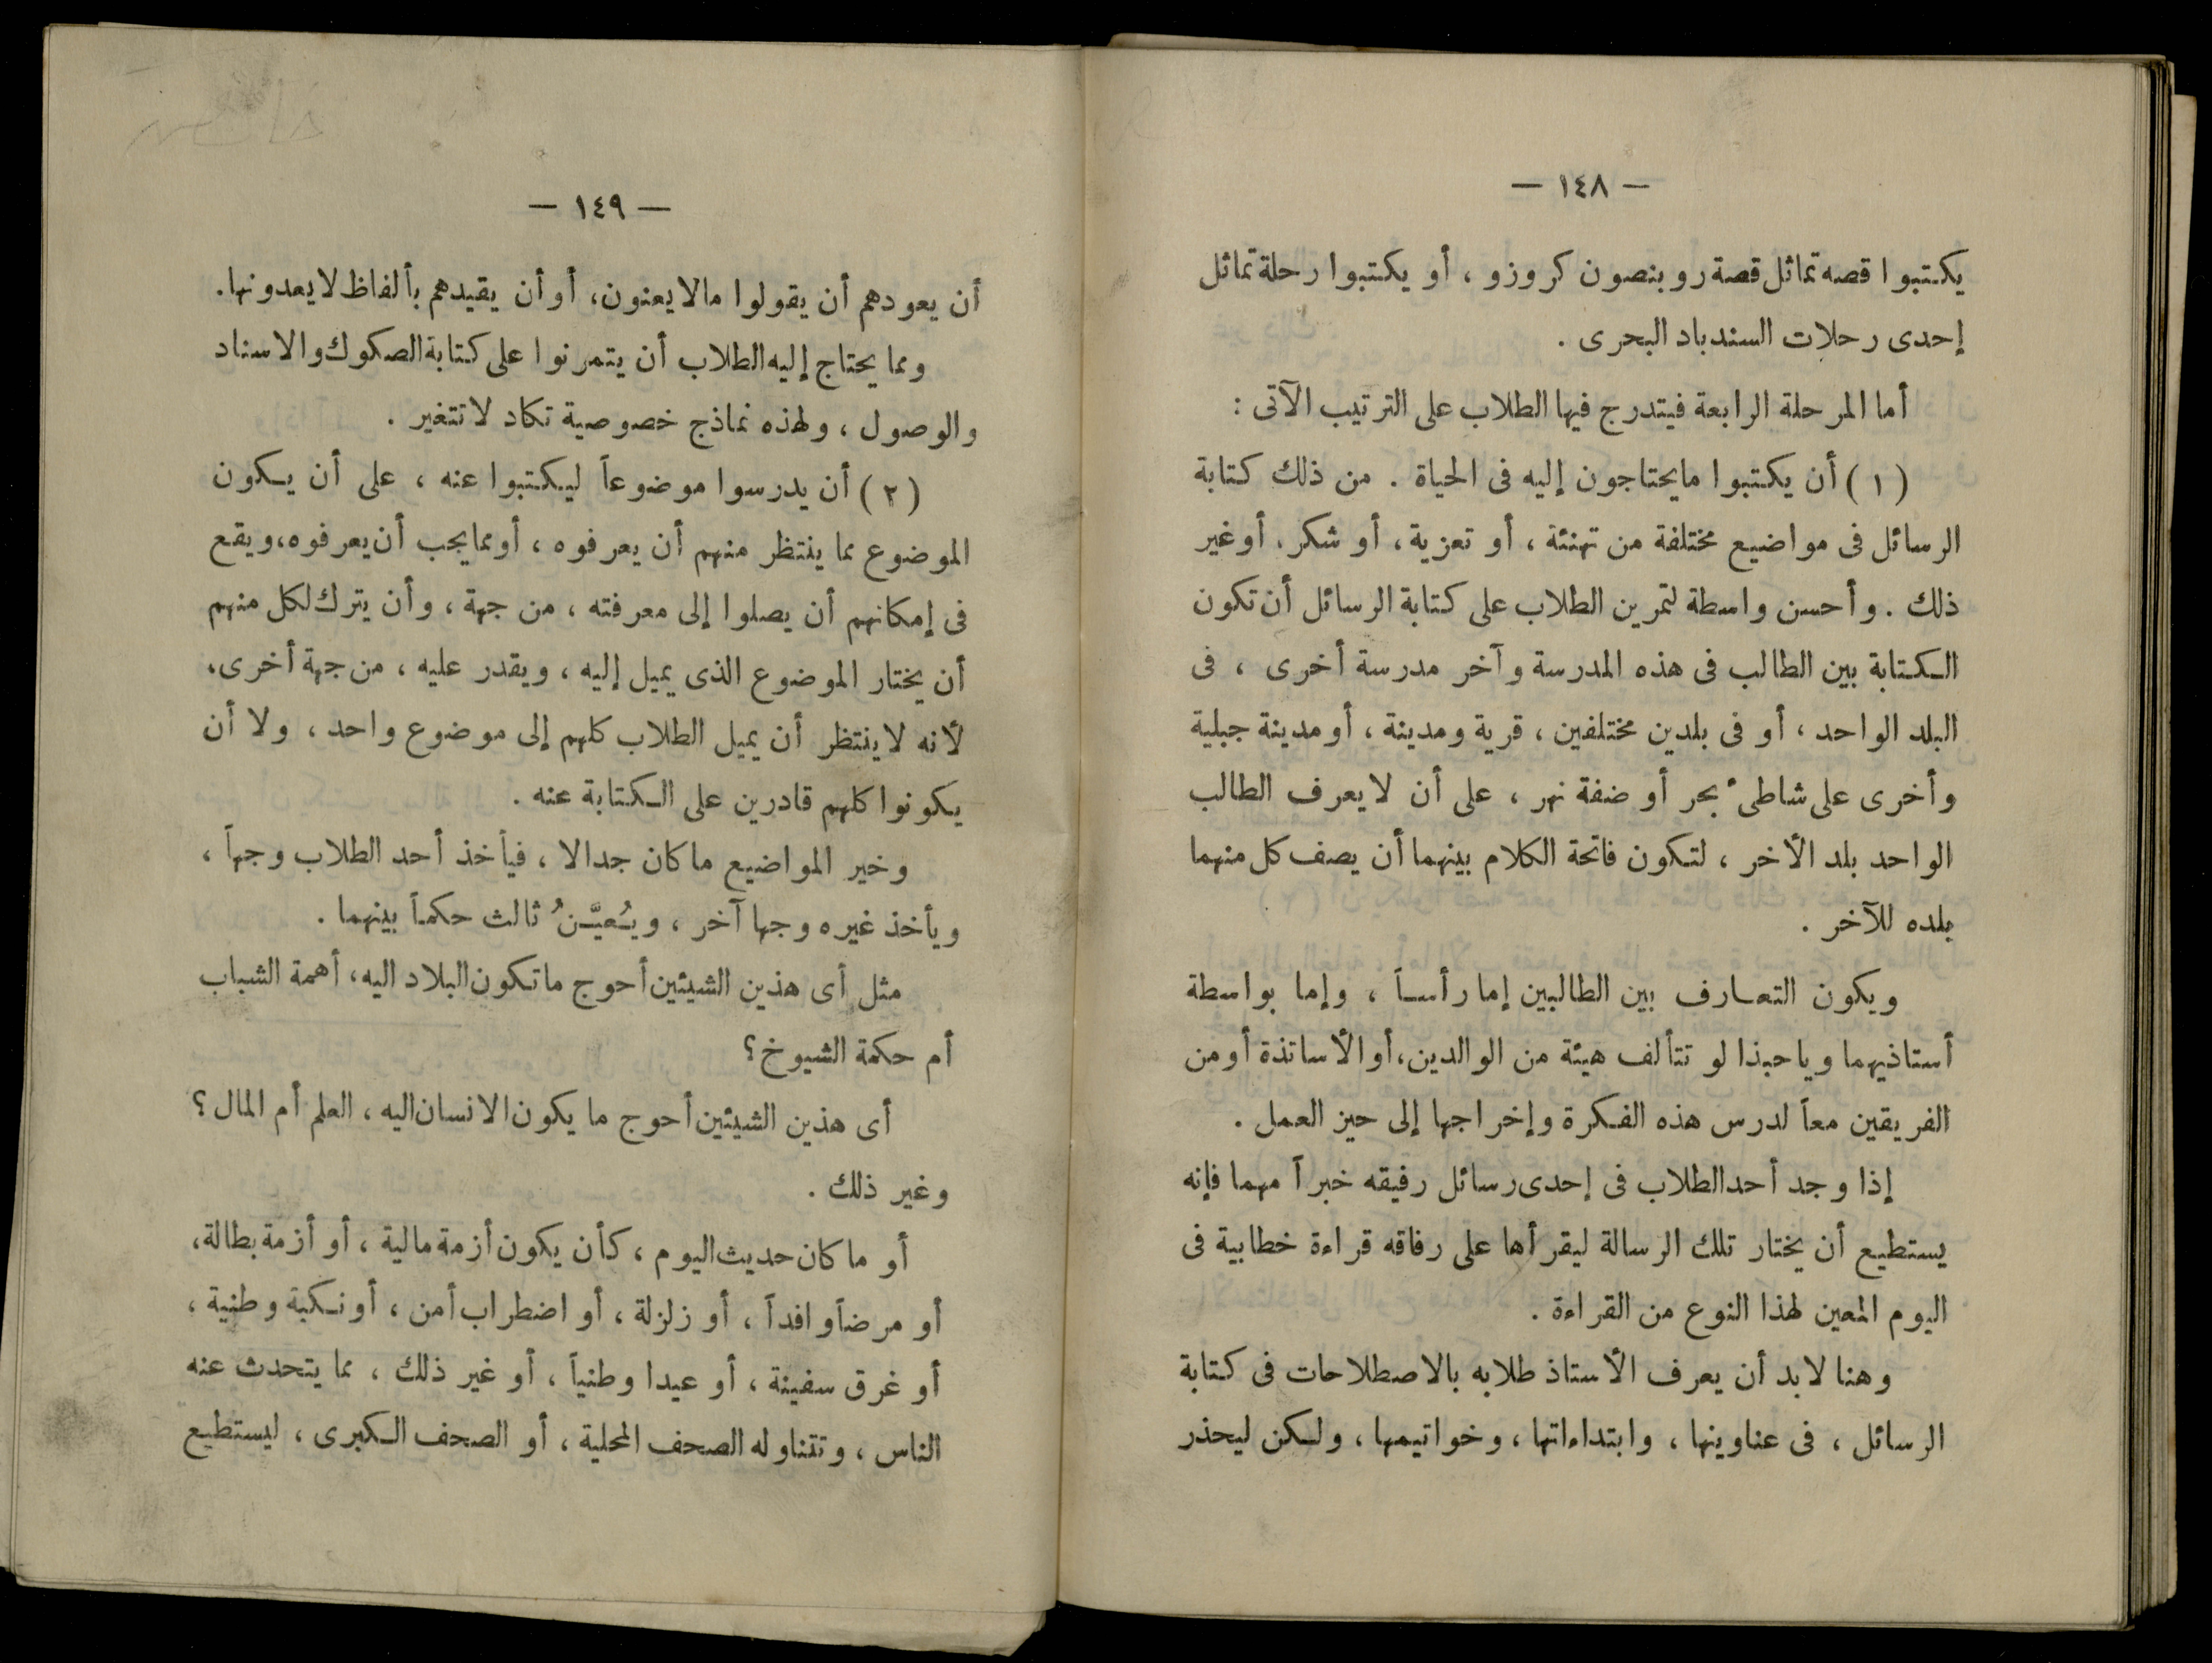 — ١٤٨ —
يكتبوا قصه تماثل قصة روبنصون كروزو ، أو يكتبوا رحلة تماثل
إحدى رحلات السندباد البحرى .
أما المرحلة الرابعة فيتدرج فيها الطلاب على الترتيب الآتى :
(١) أن يكتبوا مايحتاجون إليه فى الحياة . من ذلك كتابة
الرسائل فى مواضيع مختلفة من تهنئة ، أو تعزية ، أو شكر ، أوغير
ذلك . وأحسن واسطة لتمرين الطلاب على كتابة الرسائل أن تكون
الكتابة بين الطالب فى هذه المدرسة وآخر مدرسة أخرى ، فى
البلد الواحد ، أو فى بلدين مختلفين ، قرية ومدينة ، أومدينة جبلية
وأخرى على شاطىء بحر أو ضفة نهر ، على أن لايعرف الطالب
الواحد بلد الأخر ، لتكون فاتحة الكلام بينهما أن يصف كل منهما
بلده للآخر .
ويكون التعارف بين الطالبين إما رأساً ، وإما بواسطة
أستاذيهما وياحبذا لو تتألف هيئة من الوالدين، أوالأساتذة أومن
الفريقين معاً لدرس هذه الفكرة وإخراجها إلى حيز العمل .
إذا وجد أحدالطلاب فى إحدى رسائل رفيقه خبراً مهما فإنه
يستطيع أن يختار تلك الرسالة ليقرأها على رفاقه قراءة خطابية فى
اليوم المعين لهذا النوع من القراءة .
وهنا لابد أن يعرف الأستاذ طلابه بالاصطلاحات فى كتابة
الرسائل ، فى عناوينها ، وابتداءاتها ، وخواتيمها ، ولكن ليحذر
— ١٤٩ —
أن يعودهم أن يقولوا مالايعنون، أوأن يقيدهم بألفاظ لايعدونها.
ومما يحتاج إليه الطلاب أن يتمرنوا على كتابة الصكوك والاسناد
والوصول ، ولهذه نماذج خصوصية تكاد لاتتغير .
(٢) أن يدرسوا موضوعاً ليكتبوا عنه ، على أن يكون
الموضوع مما ينتظر منهم أن يعرفوه ، أومما يجب أن يعرفوه، ويقع
فى إمكانهم أن يصلوا إلى معرفته ، من جهة ، وأن يترك لكل منهم
أن يختار الموضوع الذى يميل إليه ، ويقدر عليه ، من جهة أخرى،
لأنه لاينتظر أن يميل الطلاب كلهم إلى موضوع واحد ، ولا أن
يكونوا كلهم قادرين على الكتابة عنه .
وخير المواضيع ماكان جدالا ، فيأخذ أحد الطلاب وجهاً ،
ويأخذ غيره وجها آخر ، ويُعيَّنُ ثالث حكماً بينهما .
مثل أى هذين الشيئين أحوج ماتكون البلاد اليه، أهمة الشباب
أم حكمة الشيوخ؟
أى هذين الشيئين أحوج ما يكون الانسان اليه ، العلم أم المال ؟
وغير ذلك .
أو ماكان حديث اليوم ، كأن يكون أزمة مالية ، أو أزمة بطالة،
أو مرضاً وافداً ، أو زلزلة ، أو اضطراب أمن ، أونكبة وطنية ،
أو غرق سفينة ، أو عيدا وطنياً ، أو غير ذلك ، مما يتحدث عنه
الناس ، وتتناوله الصحف المحلية ، أو الصحف الكبرى ، ليستطيع